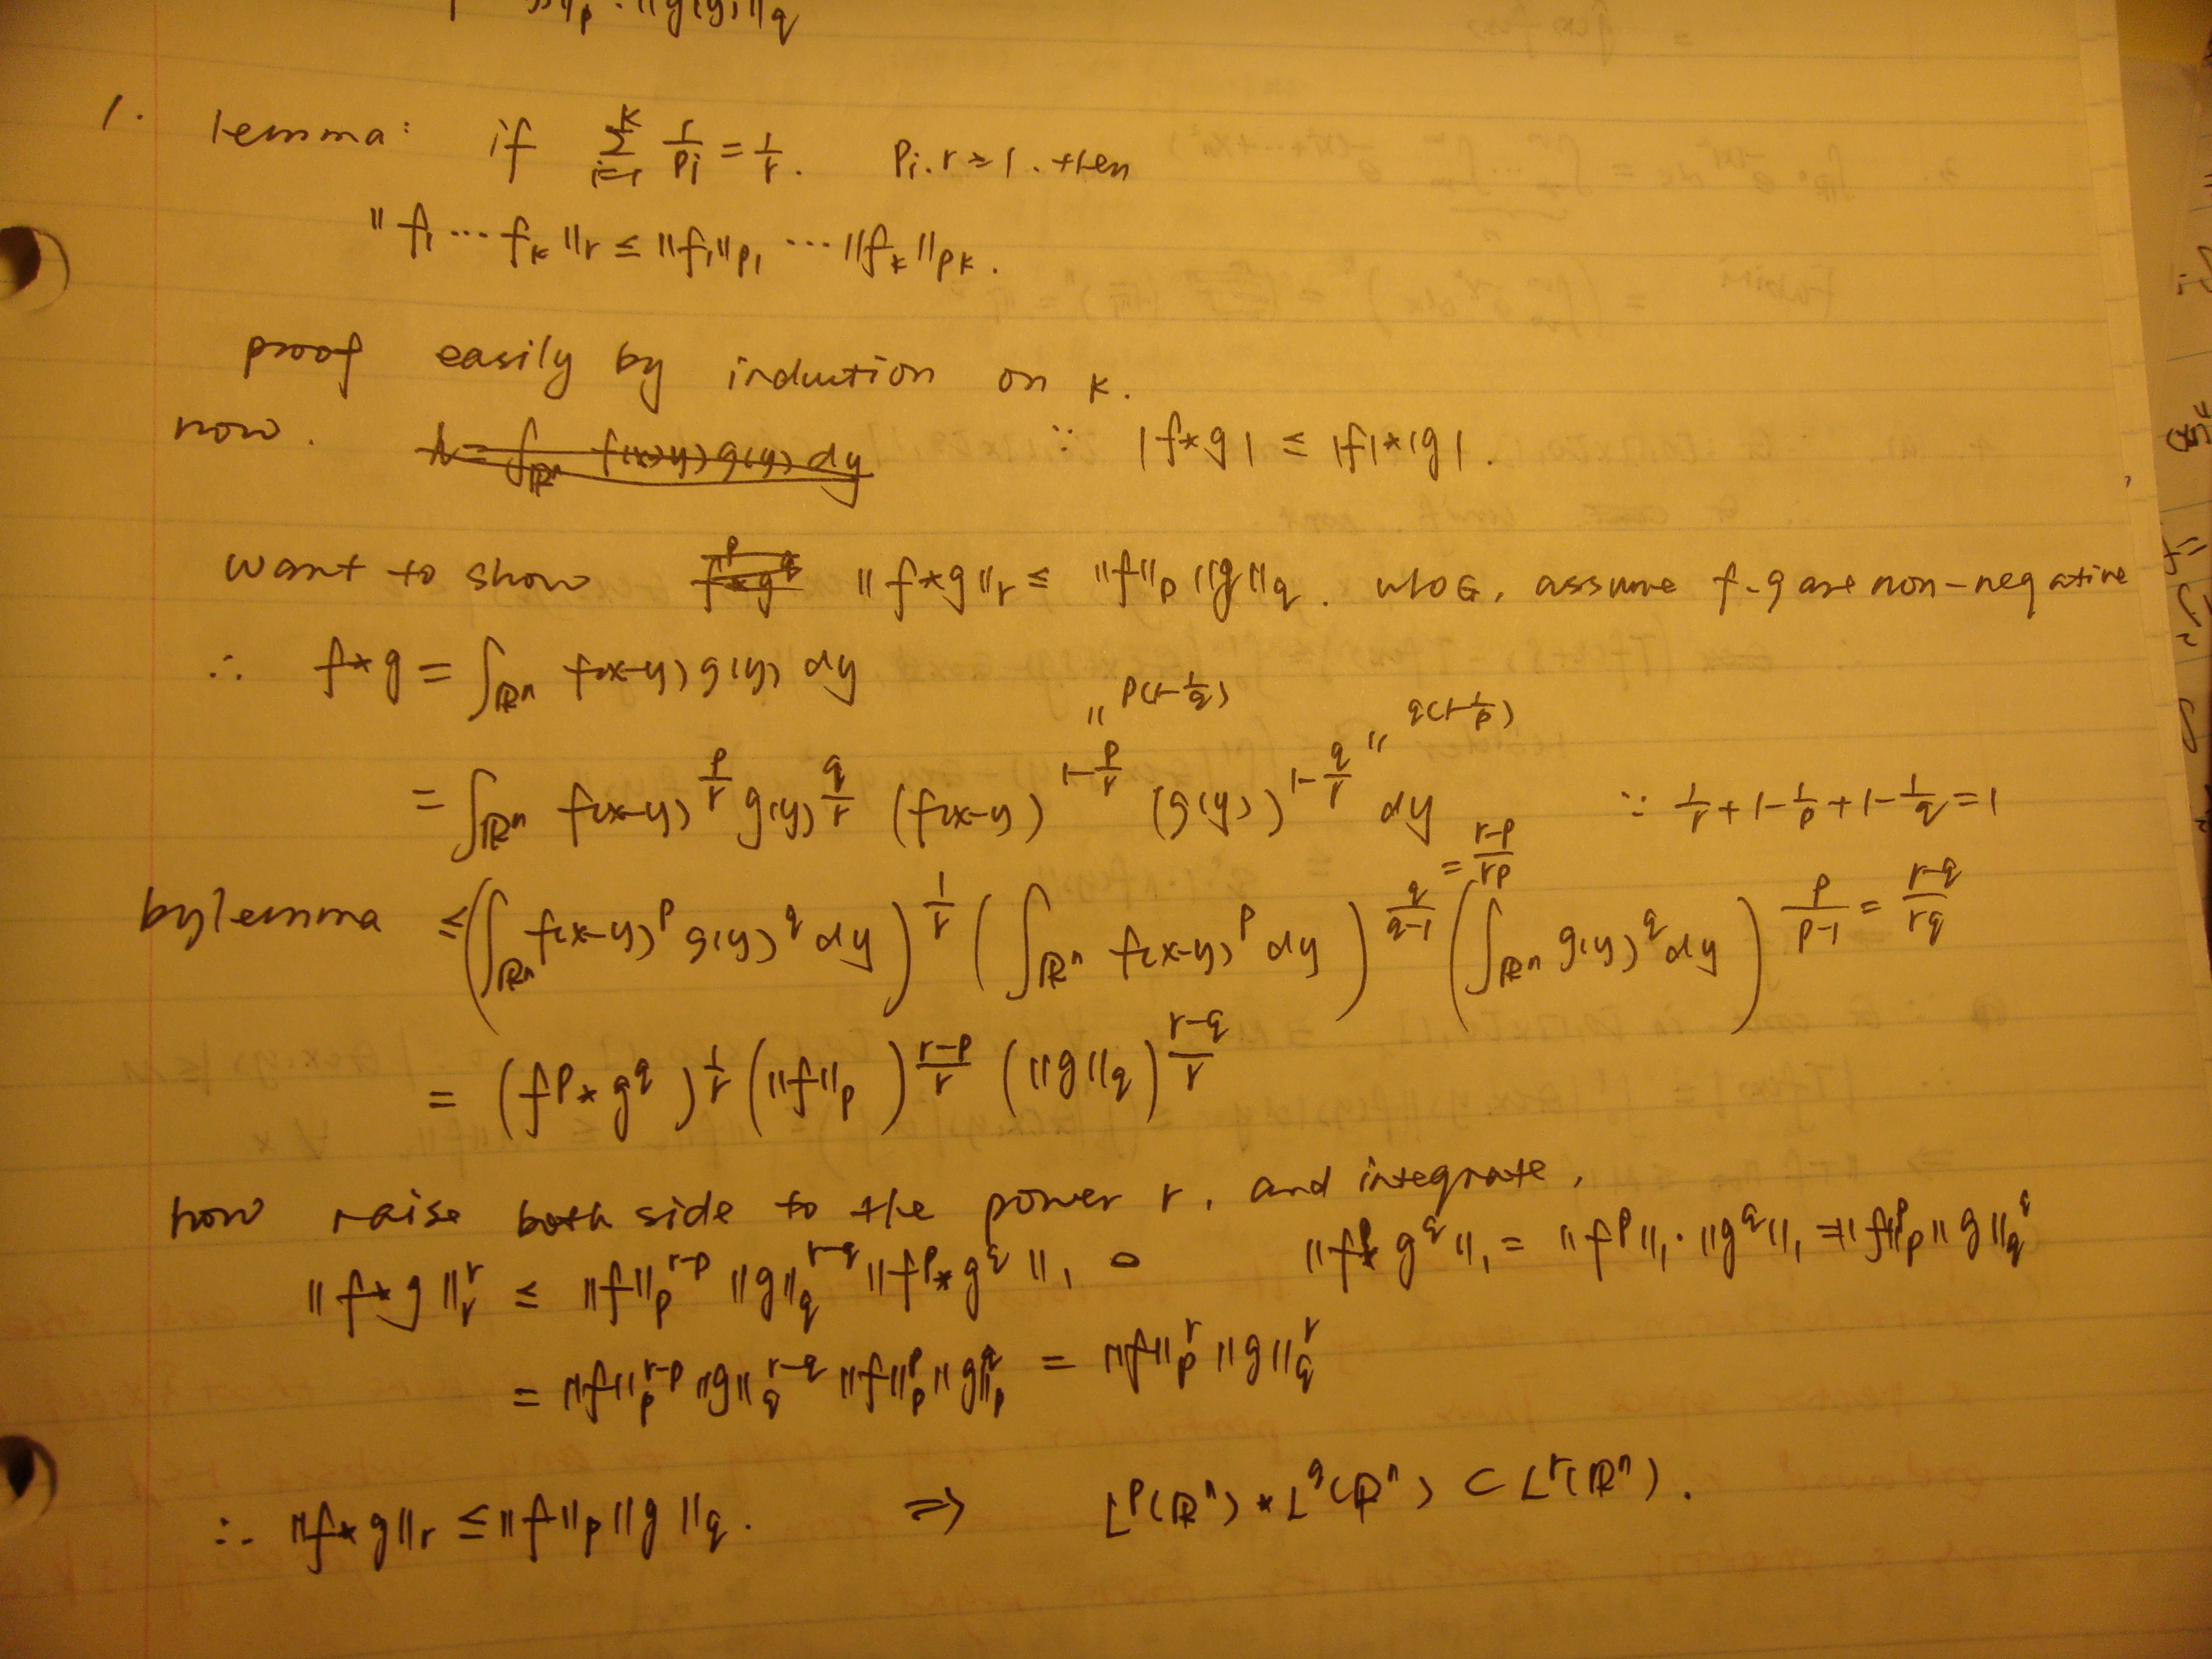 ‖p · ‖g(y)‖q
1. lemma: if \sum_{i=1}^{k} \frac{1}{p_i} = \frac{1}{r}. p_i, r ≥ 1. then
‖f_1 ⋯ f_k‖_r ≤ ‖f_1‖_{p_1} ⋯ ‖f_k‖_{p_k}.
proof easily by induction on k.
now. ∵ |f*g| ≤ |f|*|g|.
want to show ‖f*g‖_r ≤ ‖f‖_p ‖g‖_q. WLOG, assume f, g are non-negative
∴ f*g = \int_{ℝ^n} f(x-y) g(y) dy
‖ p(1-\frac{1}{q}) ‖ q(1-\frac{1}{p})
= \int_{ℝ^n} f(x-y)^{\frac{p}{r}} g(y)^{\frac{q}{r}} (f(x-y))^{1-\frac{p}{r}} (g(y))^{1-\frac{q}{r}} dy ∵ \frac{1}{r} + 1-\frac{1}{p} + 1-\frac{1}{q} = 1
by lemma ≤ (\int_{ℝ^n} f(x-y)^p g(y)^q dy)^{\frac{1}{r}} (\int_{ℝ^n} f(x-y)^p dy)^{\frac{q}{q-1} = \frac{r-p}{rp}} (\int_{ℝ^n} g(y)^q dy)^{\frac{p}{p-1} = \frac{r-q}{rq}}
= (f^p * g^q)^{\frac{1}{r}} (‖f‖_p)^{\frac{r-p}{r}} (‖g‖_q)^{\frac{r-q}{r}}
now raise both side to the power r, and integrate,
‖f*g‖_r^r ≤ ‖f‖_p^{r-p} ‖g‖_q^{r-q} ‖f^p * g^q‖_1 ‖f^p * g^q‖_1 = ‖f^p‖_1 · ‖g^q‖_1 = ‖f‖_p^p ‖g‖_q^q
= ‖f‖_p^{r-p} ‖g‖_q^{r-q} ‖f‖_p^p ‖g‖_p^q = ‖f‖_p^r ‖g‖_q^r
∴ ‖f*g‖_r ≤ ‖f‖_p ‖g‖_q. ⇒ L^p(ℝ^n) * L^q(ℝ^n) ⊂ L^r(ℝ^n).